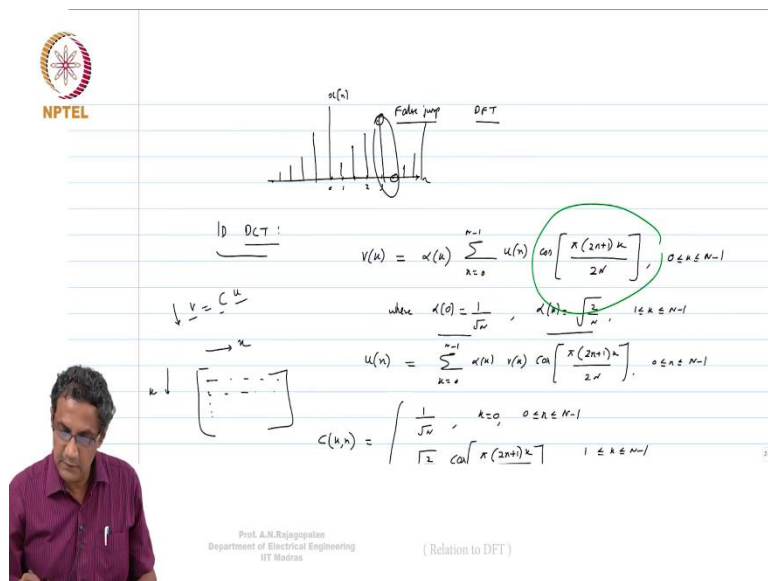 NPTEL
x(n)
False jump DFT
0 1 2 3 n
1D DCT :
v(k) = α(k) ∑_{n=0}^{N-1} u(n) cos[π(2n+1)k / 2N], 0 ≤ k ≤ N-1
v = C u
where α(0) = 1/√N, α(k) = √(2/N), 1 ≤ k ≤ N-1
→ n
u(n) = ∑_{k=0}^{N-1} α(k) v(k) cos[π(2n+1)k / 2N], 0 ≤ n ≤ N-1
k ↓
C(k,n) = { 1/√N, k=0, 0 ≤ n ≤ N-1
√2 cos[π(2n+1)k] 1 ≤ k ≤ N-1
Prof. A.N.Rajagopalan
Department of Electrical Engineering
IIT Madras
( Relation to DFT )